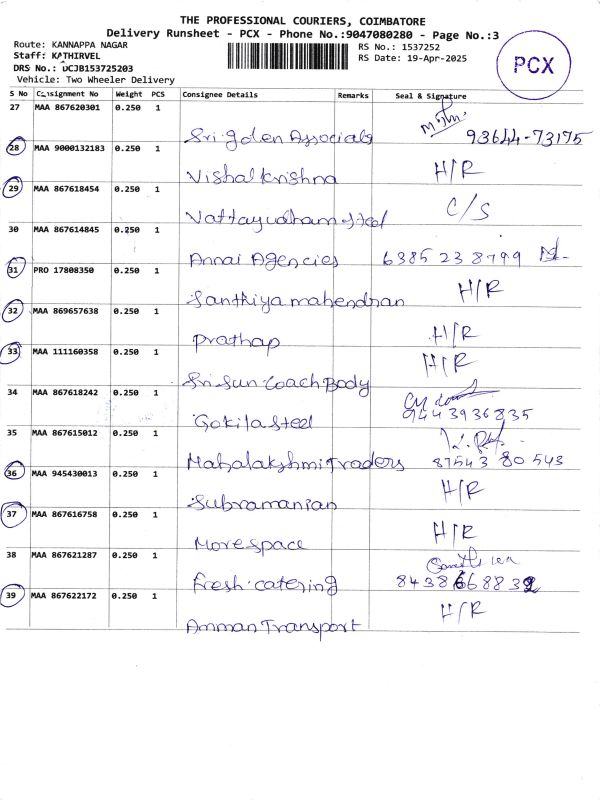 THE PROFESSIONAL COURIERS, COIMBATORE
Delivery Runsheet - PCX - Phone No.:9047080280 - Page No.:3
Route: KANNAPPA NAGAR
Staff: KATHIRVEL
DRS No.: DCJB153725203
Vehicle: Two Wheeler Delivery
RS No.: 1537252
RS Date: 19-Apr-2025
PCX
S No Consignment No Weight PCS Consignee Details Remarks Seal & Signature
27 MAA 867620301 0.250 1 Sri golen Associals 93644-73175
28 MAA 9000132183 0.250 1 Vishal Krishna H/R
29 MAA 867618454 0.250 1 Vattayudham steel C/S
30 MAA 867614845 0.250 1 Annai Agencies 6385 23 8799
31 PRO 17808350 0.250 1 Santhiya mahendran H/R
32 MAA 869657638 0.250 1 Prathap H/R
33 MAA 111160358 0.250 1 Sri Sun Coach Body H/R
34 MAA 867618242 0.250 1 Gokila Steel 9443936835
35 MAA 867615012 0.250 1 Mahalakshmi Traders 87543 80 543
36 MAA 945430013 0.250 1 Subramanian H/R
37 MAA 867616758 0.250 1 Morespace H/R
38 MAA 867621287 0.250 1 Fresh catering 8438668832
39 MAA 867622172 0.250 1 Amman Transport H/R